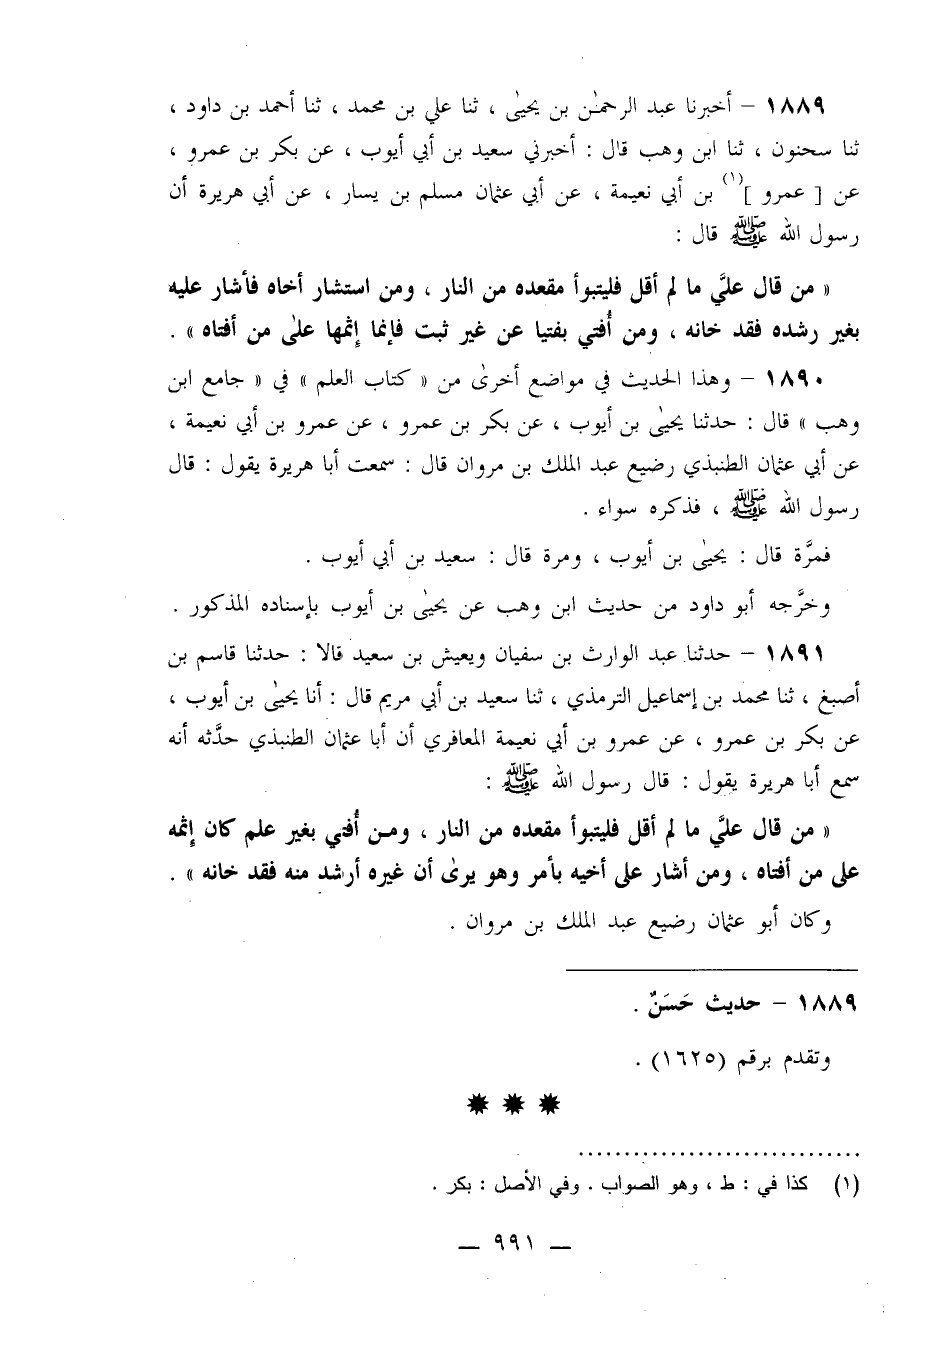 ١٨٨٩ – أخبرنا عبد الرحمٰن بن يحيىٰ ، ثنا علي بن محمد ، ثنا أحمد بن داود ،
ثنا سحنون ، ثنا ابن وهب قال : أخبرني سعيد بن أبي أيوب ، عن بكر بن عمرو ،
عن [ عمرو ](١) بن أبي نعيمة ، عن أبي عثمان مسلم بن يسار ، عن أبي هريرة أن
رسول الله ﷺ قال :
« من قال عليَّ ما لم أقل فليتبوأ مقعده من النار ، ومن استشار أخاه فأشار عليه
بغير رشده فقد خانه ، ومن أُفتي بفتيا عن غير ثبت فإنما إثمها علىٰ من أفتاه » .
١٨٩٠ – وهذا الحديث في مواضع أخرىٰ من « كتاب العلم » في « جامع ابن
وهب » قال : حدثنا يحيىٰ بن أيوب ، عن بكر بن عمرو ، عن عمرو بن أبي نعيمة ،
عن أبي عثمان الطنبذي رضيع عبد الملك بن مروان قال : سمعت أبا هريرة يقول : قال
رسول الله ﷺ ، فذكره سواء .
فمرَّة قال : يحيىٰ بن أيوب ، ومرة قال : سعيد بن أبي أيوب .
وخرَّجه أبو داود من حديث ابن وهب عن يحيىٰ بن أيوب بإسناده المذكور .
١٨٩١ – حدثنا عبد الوارث بن سفيان ويعيش بن سعيد قالا : حدثنا قاسم بن
أصبغ ، ثنا محمد بن إسماعيل الترمذي ، ثنا سعيد بن أبي مريم قال : أنا يحيىٰ بن أيوب ،
عن بكر بن عمرو ، عن عمرو بن أبي نعيمة المعافري أن أبا عثمان الطنبذي حدَّثه أنه
سمع أبا هريرة يقول : قال رسول الله ﷺ :
« من قال عليَّ ما لم أقل فليتبوأ مقعده من النار ، ومـن أُفتي بغير علم كان إثمه
على من أفتاه ، ومن أشار على أخيه بأمر وهو يرىٰ أن غيره أرشد منه فقد خانه » .
وكان أبو عثمان رضيع عبد الملك بن مروان .
١٨٨٩ – حديث حَسَنٌ .
وتقدم برقم (١٦٢٥) .
✸ ✸ ✸
(١) كذا في : ط ، وهو الصواب . وفي الأصل : بكر .
— ٩٩١ —